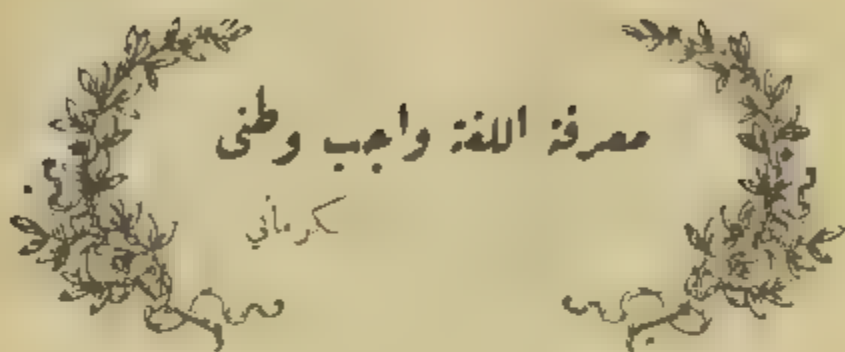 معرفة اللغة واجب وطنى
كرماني